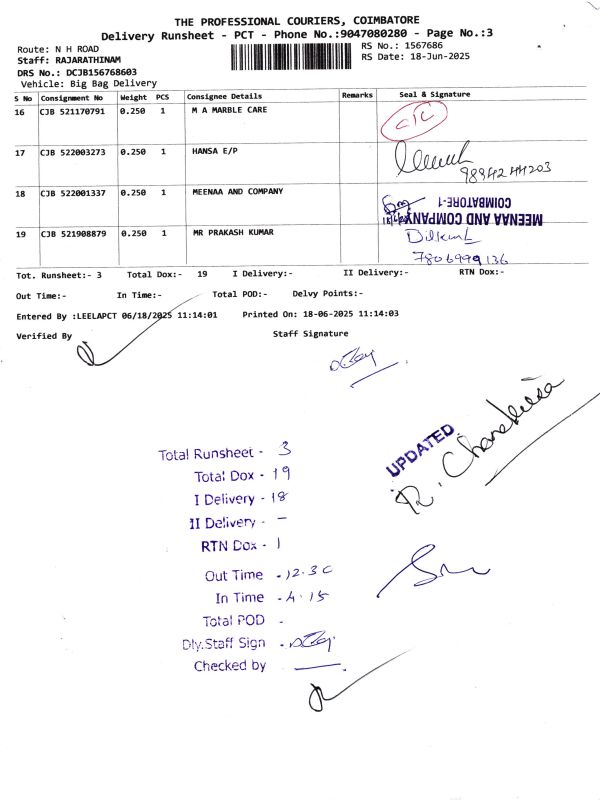 THE PROFESSIONAL COURIERS, COIMBATORE
Delivery Runsheet - PCT - Phone No.:9047080280 - Page No.:3
Route: N H ROAD
RS No.: 1567686
Staff: RAJARATHINAM
RS Date: 18-Jun-2025
DRS No.: DCJB156768603
Vehicle: Big Bag Delivery
S No Consignment No Weight PCS Consignee Details Remarks Seal & Signature
16 CJB 521170791 0.250 1 M A MARBLE CARE
17 CJB 522003273 0.250 1 HANSA E/P
98942 44203
18 CJB 522001337 0.250 1 MEENAA AND COMPANY
MEENAA AND COMPANY
COIMBATORE-1
19 CJB 521908879 0.250 1 MR PRAKASH KUMAR
7806999136
Tot. Runsheet:- 3 Total Dox:- 19 I Delivery:- II Delivery:- RTN Dox:-
Out Time:- In Time:- Total POD:- Delvy Points:-
Entered By :LEELAPCT 06/18/2025 11:14:01 Printed On: 18-06-2025 11:14:03
Verified By Staff Signature
UPDATED
Total Runsheet - 3
Total Dox - 19
I Delivery - 18
II Delivery - –
RTN Dox - 1
Out Time - 12.30
In Time - 4.15
Total POD -
Dly.Staff Sign -
Checked by